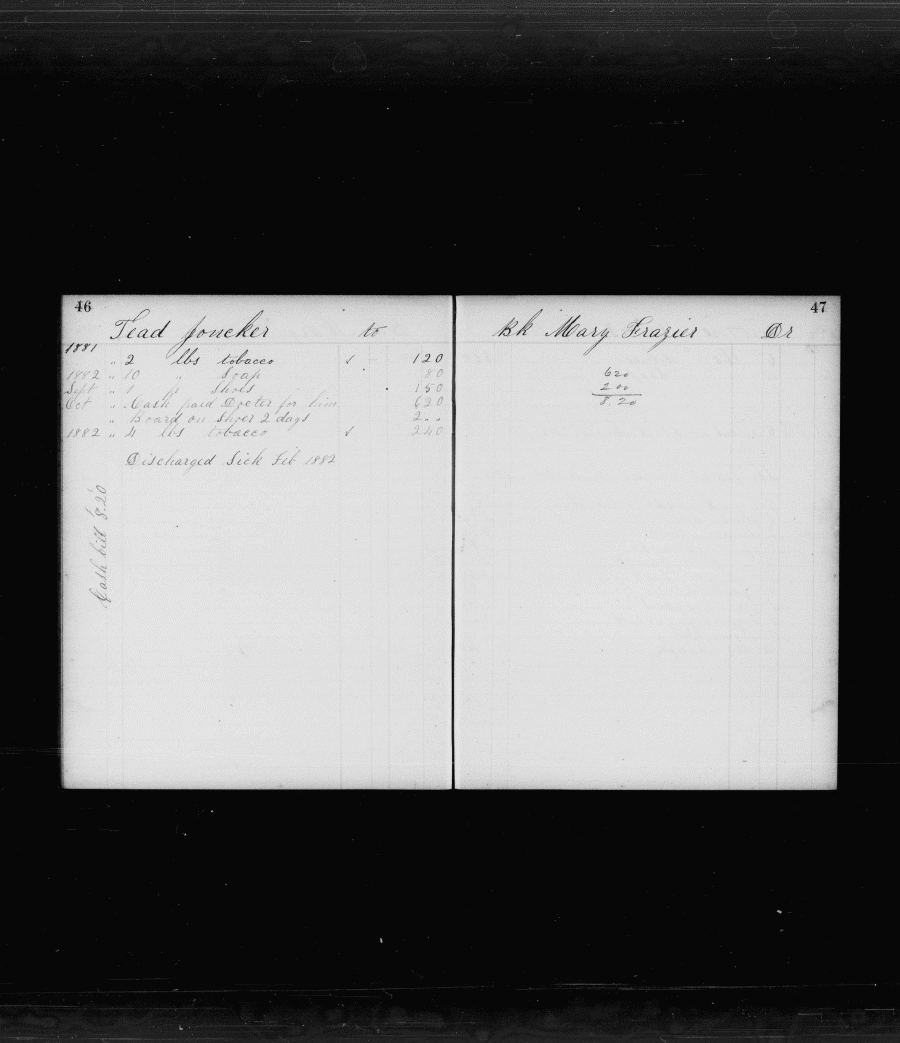 46
Tead Joncker to
1881 " 2 lbs tobacco s 120
1882 " 10 " Soap 80
Sept " 1 p Shoes 150
Oct " Cash paid Docter for him 620
" Board on Shoer 2 days 2..
1882 " 4 lbs tobacco s 240
Discharged Sick Feb 1882
Cash bill 8.20
47
Bk Mary Frazier Dr
620
200
8.20